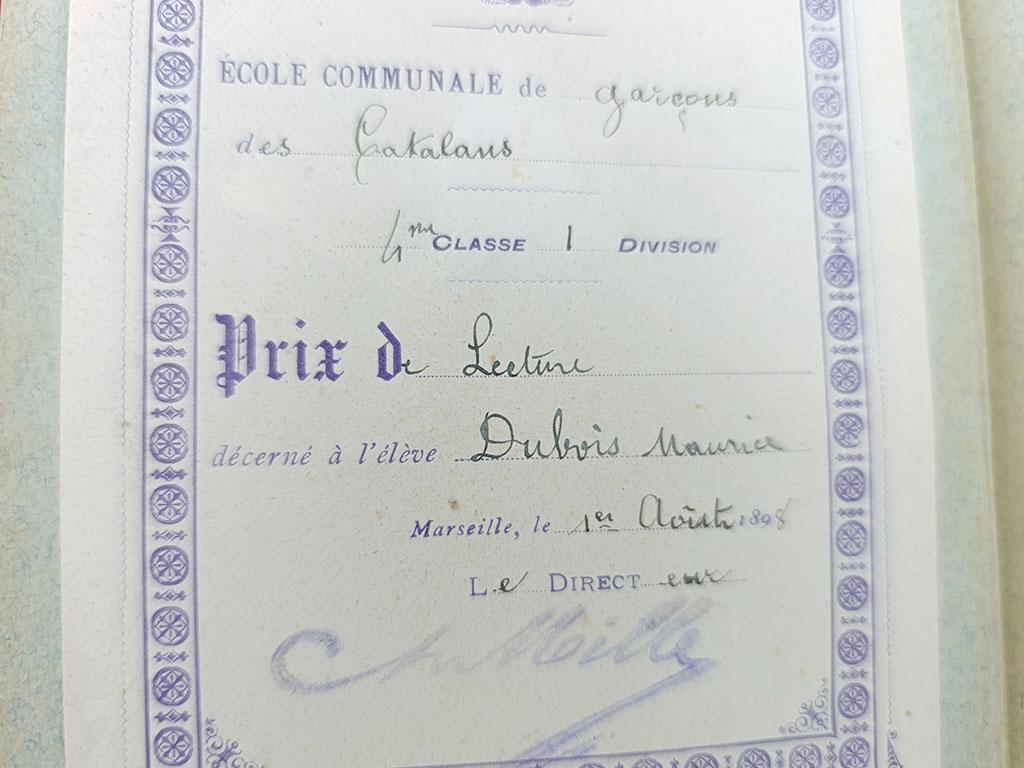 ÉCOLE COMMUNALE de garçons
des Catalans
4me CLASSE 1 DIVISION
Prix de Lecture
décerné à l'élève Dubois Maurice
Marseille, le 1er Août 1898
Le DIRECTeur